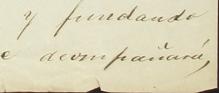 y fundando
e acompañará,